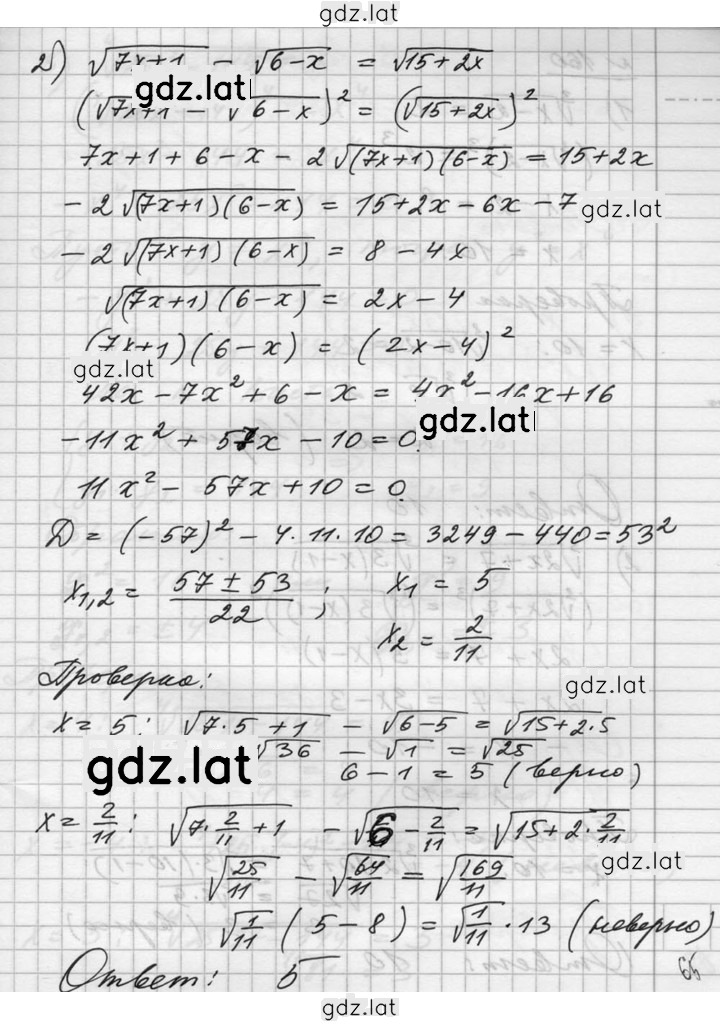 gdz.lat
2) √(7x+1) − √(6−x) = √(15+2x)
gdz.lat
(√(7x+1) − √(6−x))² = (√(15+2x))²
7x+1+6−x−2√((7x+1)(6−x)) = 15+2x
−2√((7x+1)(6−x)) = 15+2x−6x−7
gdz.lat
−2√((7x+1)(6−x)) = 8−4x
√((7x+1)(6−x)) = 2x−4
(7x+1)(6−x) = (2x−4)²
gdz.lat
42x−7x²+6−x = 4x²−16x+16
gdz.lat
−11x²+57x−10=0
11x²−57x+10=0
D = (−57)²−4·11·10 = 3249−440=53²
x₁,₂ = (57±53)/22 ; x₁ = 5
x₂ = 2/11
Проверка:
gdz.lat
x=5: √(7·5+1) − √(6−5) = √(15+2·5)
√36 − √1 = √25
gdz.lat
6−1=5 (верно)
x=2/11: √(7·2/11+1) − √(6−2/11) = √(15+2·2/11)
gdz.lat
√(25/11) − √(64/11) = √(169/11)
√(1/11) (5−8) = √(1/11)·13 (неверно)
Ответ: 5
65
gdz.lat